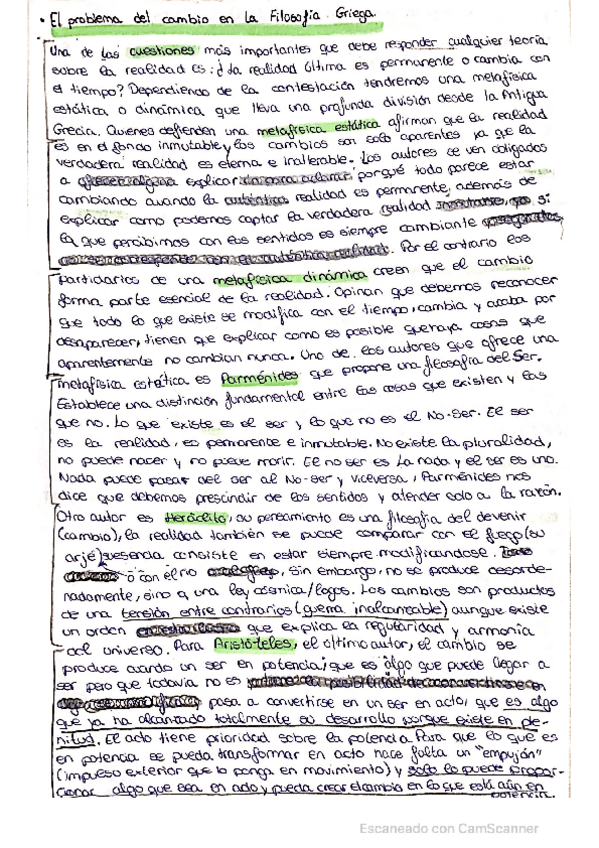 • El problema del cambio en la Filosofía Griega.
Una de las cuestiones más importantes que debe responder cualquier teoría
sobre la realidad es: ¿la realidad última es permanente o cambia con
el tiempo? Dependiendo de la contestación tendremos una metafísica
estática o dinámica que lleva una profunda división desde la Antigua
Grecia. Quienes defienden una metafísica estática afirman que la realidad
es en el fondo inmutable y los cambios son solo aparentes ya que la
verdadera realidad es eterna e inalterable. Los autores se ven obligados
a explicar porqué todo parece estar
cambiando cuando la realidad es permanente, además de
explicar como podemos captar la verdadera realidad si
la que percibimos con los sentidos es siempre cambiante
. Por el contrario los
partidarios de una metafísica dinámica creen que el cambio
forma parte esencial de la realidad. Opinan que debemos reconocer
que todo lo que existe se modifica con el tiempo, cambia y acaba por
desaparecer, tienen que explicar como es posible que haya cosas que
aparentemente no cambian nunca. Uno de los autores que ofrece una
metafísica estática es Parménides que propone una filosofía del Ser.
Establece una distinción fundamental entre las cosas que existen y las
que no. Lo que existe es el ser y lo que no es el No-Ser. El ser
es la realidad, es permanente e inmutable. No existe la pluralidad,
no puede nacer y no puede morir. El no ser es la nada y el ser es uno.
Nada puede pasar del ser al No-Ser y viceversa, Parménides nos
dice que debemos prescindir de los sentidos y atender solo a la razón.
Otro autor es Heráclito, su pensamiento es una filosofía del devenir
(cambio), la realidad también se puede comparar con el fuego (su
arjé) esencia consiste en estar siempre modificandose.
o con el río , sin embargo, no se produce desorde-
nadamente, sino a una ley cósmica/logos. Los cambios son productos
de una tensión entre contrarios (guerra inalcanzable) aunque existe
un orden que explica la regularidad y armonía
del universo. Para Aristóteles, el último autor, el cambio se
produce cuando un ser en potencia; que es algo que puede llegar a
ser pero que todavía no es
pasa a convertirse en un ser en acto, que es algo
que ya ha alcanzado totalmente su desarrollo porque existe en ple-
nitud. El acto tiene prioridad sobre la potencia. Para que lo que es
en potencia se pueda transformar en acto hace falta un "empujón"
(impulso exterior que lo ponga en movimiento) y solo lo puede propor-
cionar algo que sea en acto y pueda crear el cambio en lo que está aún en
potencia.
Escaneado con CamScanner